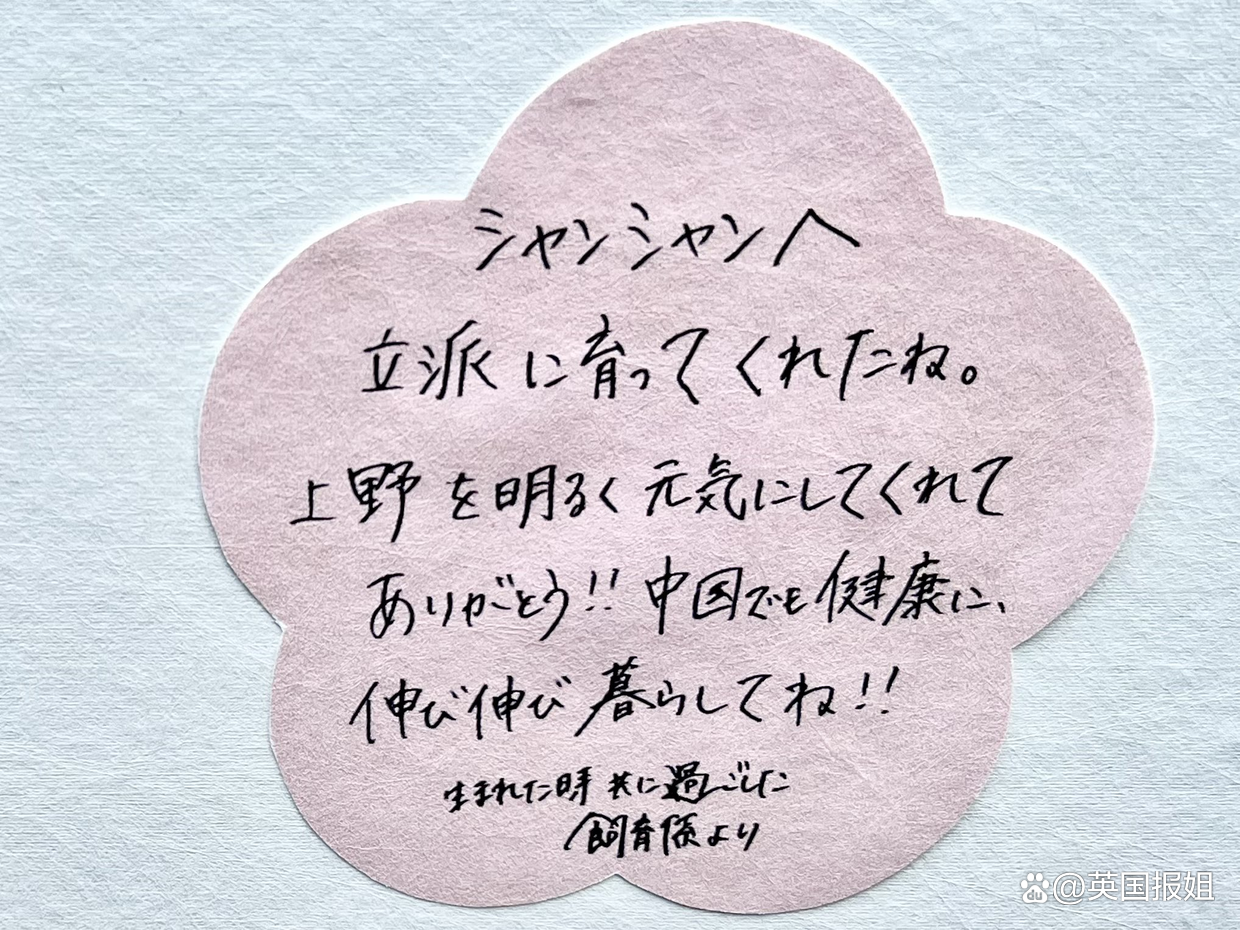 シャンシャンへ
立派に育ってくれたね。
上野を明るく元気にしてくれて
ありがとう!!中国でも健康に、
伸び伸び暮らしてね!!
生まれた時共に過ごした
飼育係より
du@英国报姐